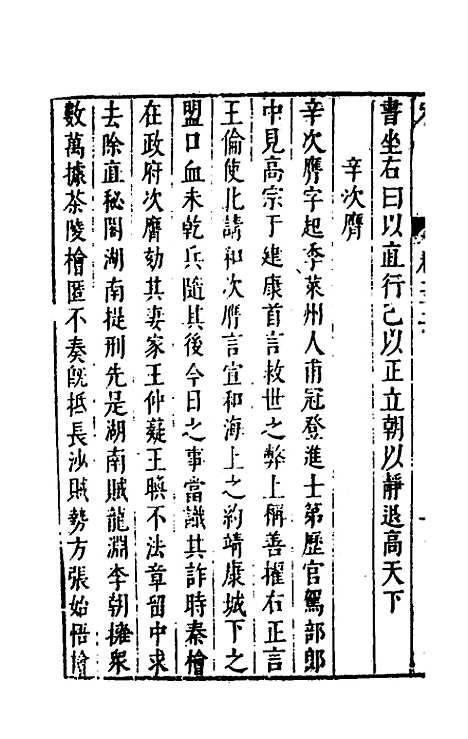 書坐右曰以直行己以正立朝以靜退高天下
辛次膺
辛次膺字起季萊州人甫冠登進士第歷官駕部郎
中見高宗于建康首言救世之弊上稱善擢右正言
王倫使北請和次膺言宣和海上之約靖康城下之
盟口血未乾兵隨其後今日之事當識其詐時秦檜
在政府次膺劾其妻家王仲薿王㬇不法章留中求
去除直秘閣湖南提刑先是湖南賊龍淵李朝擁衆
數萬據茶陵檜匿不奏旣抵長沙賊勢方張始悟檜